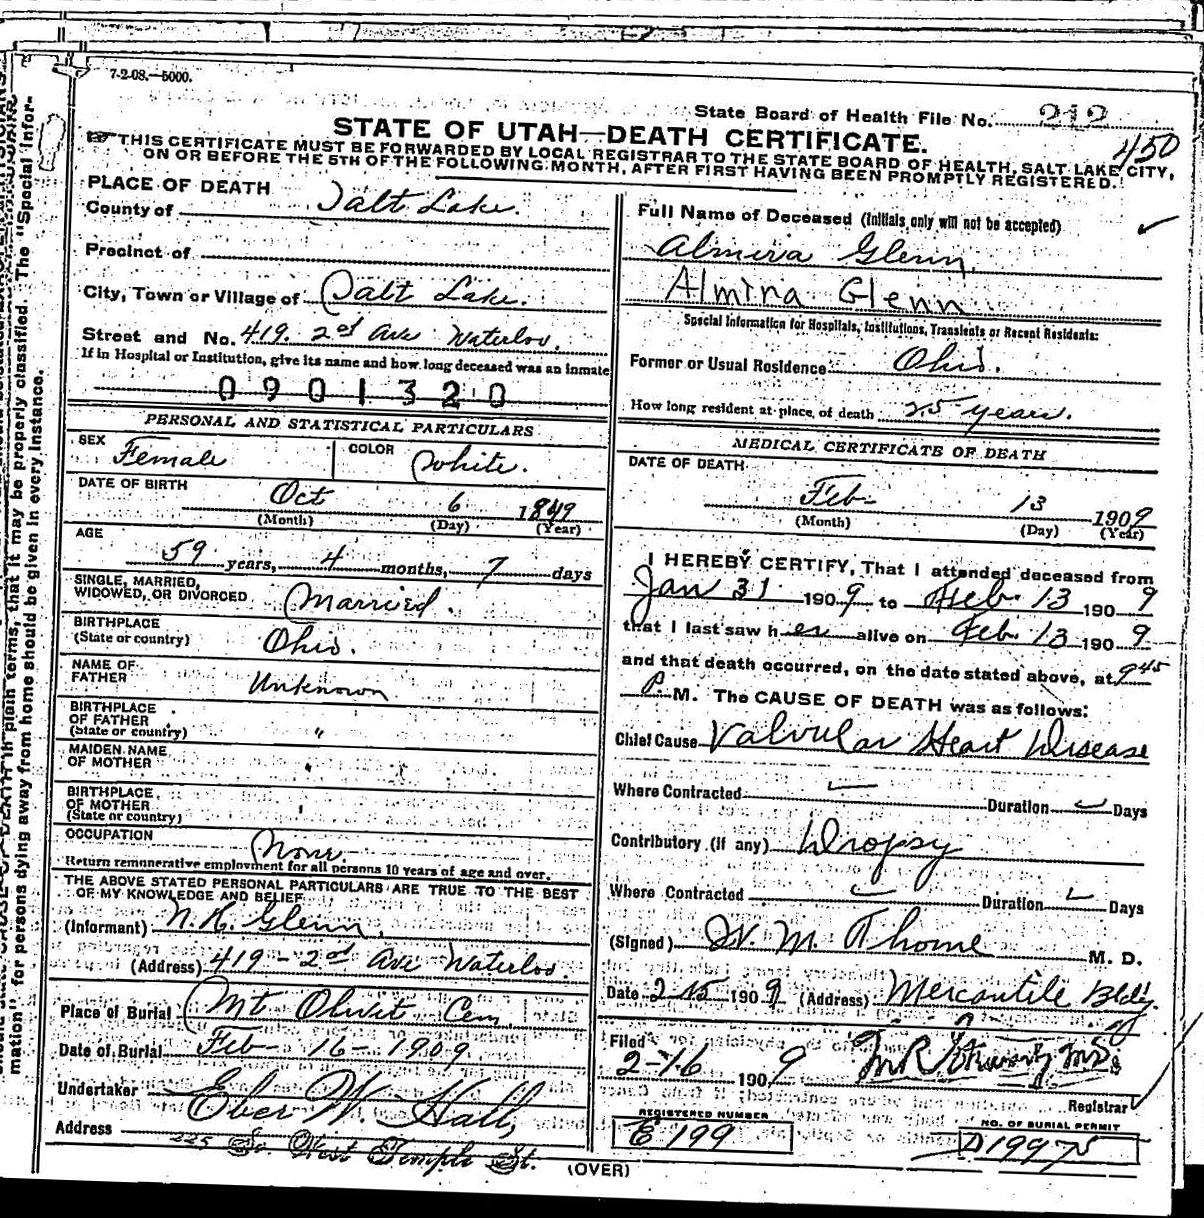 7-2-08.—5000.
State Board of Health File No. 212
450
STATE OF UTAH—DEATH CERTIFICATE.
THIS CERTIFICATE MUST BE FORWARDED BY LOCAL REGISTRAR TO THE STATE BOARD OF HEALTH, SALT LAKE CITY,
ON OR BEFORE THE 5TH OF THE FOLLOWING MONTH, AFTER FIRST HAVING BEEN PROMPTLY REGISTERED.
PLACE OF DEATH
County of Salt Lake.
Precinct of
City, Town or Village of Salt Lake.
Street and No. 419. 2nd Ave Waterloo.
If in Hospital or Institution, give its name and how long deceased was an inmate
0901320
PERSONAL AND STATISTICAL PARTICULARS
SEX Female COLOR White.
DATE OF BIRTH
Oct 6 1849
(Month) (Day) (Year)
AGE
59 years, 4 months, 7 days
SINGLE, MARRIED,
WIDOWED, OR DIVORCED Married.
BIRTHPLACE
(State or country) Ohio.
NAME OF
FATHER Unknown
BIRTHPLACE
OF FATHER
(State or country) "
MAIDEN NAME
OF MOTHER "
BIRTHPLACE
OF MOTHER
(State or country)
OCCUPATION None.
Return remunerative employment for all persons 10 years of age and over.
THE ABOVE STATED PERSONAL PARTICULARS ARE TRUE TO THE BEST
OF MY KNOWLEDGE AND BELIEF
(Informant) N. K. Glenn.
(Address) 419 - 2nd Ave Waterloo.
Place of Burial Mt Olivit Cem.
Date of Burial Feb - 16 - 1909.
Undertaker Eber W. Hall,
Address 225 So. West Temple St.
Full Name of Deceased (Initials only will not be accepted)
Almira Glenn.
Almina Glenn
Special Information for Hospitals, Institutions, Transients or Recent Residents:
Former or Usual Residence Ohio.
How long resident at place of death 25 years.
MEDICAL CERTIFICATE OF DEATH
DATE OF DEATH
Feb- 13 1909
(Month) (Day) (Year)
I HEREBY CERTIFY, That I attended deceased from
Jan 31 1909 to Feb. 13 1909
that I last saw her alive on Feb. 13 1909.
and that death occurred, on the date stated above, at 9 45
P. M. The CAUSE OF DEATH was as follows:
Chief Cause Valvular Heart Disease
Where Contracted Duration Days
Contributory (if any) Dropsy
Where Contracted Duration Days
(Signed) W. M. Thome M. D.
Date 2 15 1909 (Address) Mercantile Bldg.
Filed
2-16 1909
Registrar
REGISTERED NUMBER
E 199
NO. OF BURIAL PERMIT
D1997
(OVER)
mation" for persons dying away from home should be given in every instance.
in plain terms, that it may be properly classified. The "Special Infor-